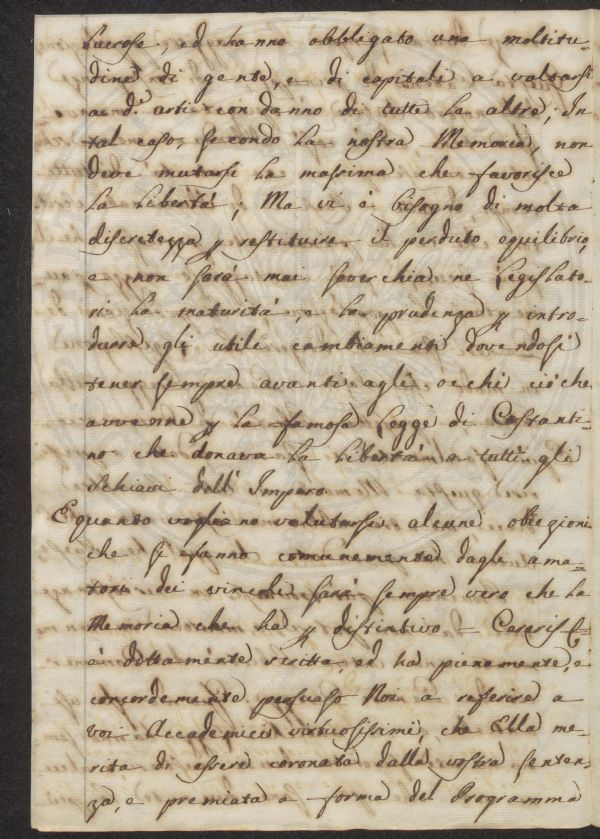 lucrose, ed hanno obbligato una moltitu-
dine di gente, e di capitali a voltarsi
a d.e arti con danno di tutte la altre; In
tal caso, secondo la nostra Memoria, non
deve mutarsi la massima che favorisce
la libertà; Ma vi è bisogno di molta
discretezza p restituire il perduto equilibrio,
e non sarà mai soverchia ne Legislato-
ri la maturità, e la prudenza p intro-
durre gli utili cambiamenti dovendosi
tener sempre avanti agli occhi ciò che
avvenne p la famosa Legge di Costanti-
no che donava la libertà a tutti gli
schiavi dell' Impero.
E quanto vogliano valutarsi alcune obiezioni
che si fanno comunemente dagli ama-
tori dei vincoli sarà sempre vero che la
Memoria che ha p distintivo =
è dottamente scritta, ed ha pienamente, e
concordemente persuaso Noi a referire a
voi Accademici virtuosissimi, che Ella me-
rita di essere coronata dalla vostra senten-
za, e premiata a forma del Programma